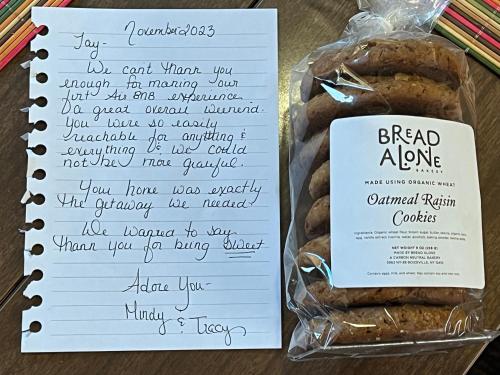 November 2023
Jay-
We can't thank you
enough for making our
first Air BNB experience
a great overall weekend.
You were so easily
reachable for anything &
everything & we could
not be more grateful.
Your home was exactly
the getaway we needed
We wanted to say
thank you for being sweet
Adore You-
Mindy & Tracy
BREAD
ALONE
BAKERY
MADE USING ORGANIC WHEAT
Oatmeal Raisin
Cookies
NET WEIGHT 9 OZ
MADE BY BREAD ALONE
A CARBON NEUTRAL BAKERY